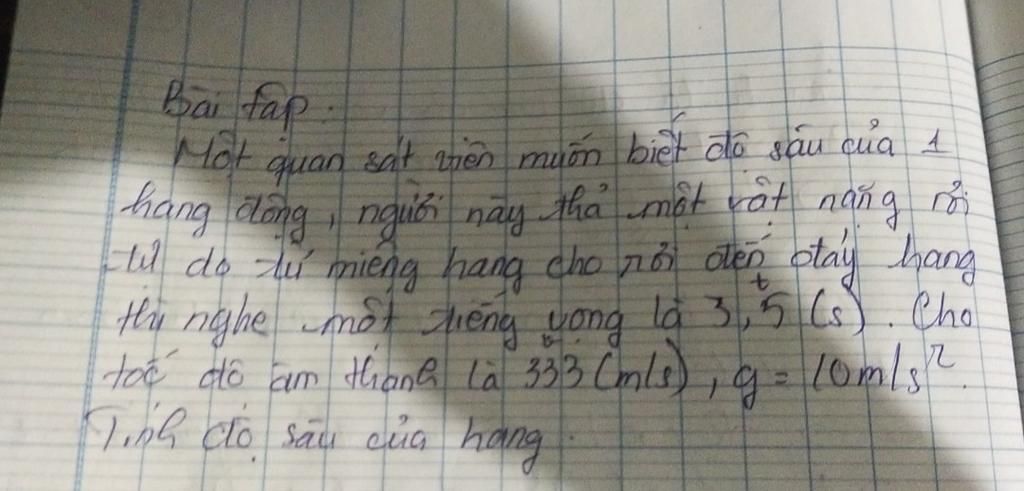 Bài tập.
Một quan sát viên muốn biết độ sâu của 1
hang động, người này thả một vật nặng rơi
tự do từ miệng hang cho nơi đến đáy hang
thì nghe một tiếng vọng là 3,5 (s). Cho
t
v
tốc độ âm thanh là 333 (m/s), g = 10m/s²
Tính độ sâu của hang.